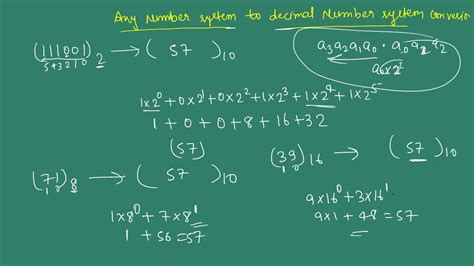 Any Number system to decimal Number system conversio
(111001)₂ → ( 57 )₁₀
543210
a₃a₂a₁a₀ . a₀a₁a₂
1x2⁰+0x2¹+0x2²+1x2³+1x2⁴+1x2⁵
1 + 0 + 0 + 8 + 16 + 32
(57)
(71)₈ → ( 57 )₁₀
1 0
1x8⁰+7x8¹
1 + 56 = 57
(39)₁₆ → ( 57 )₁₀
1 0
9x16⁰+3x16¹
9x1 + 48 = 57